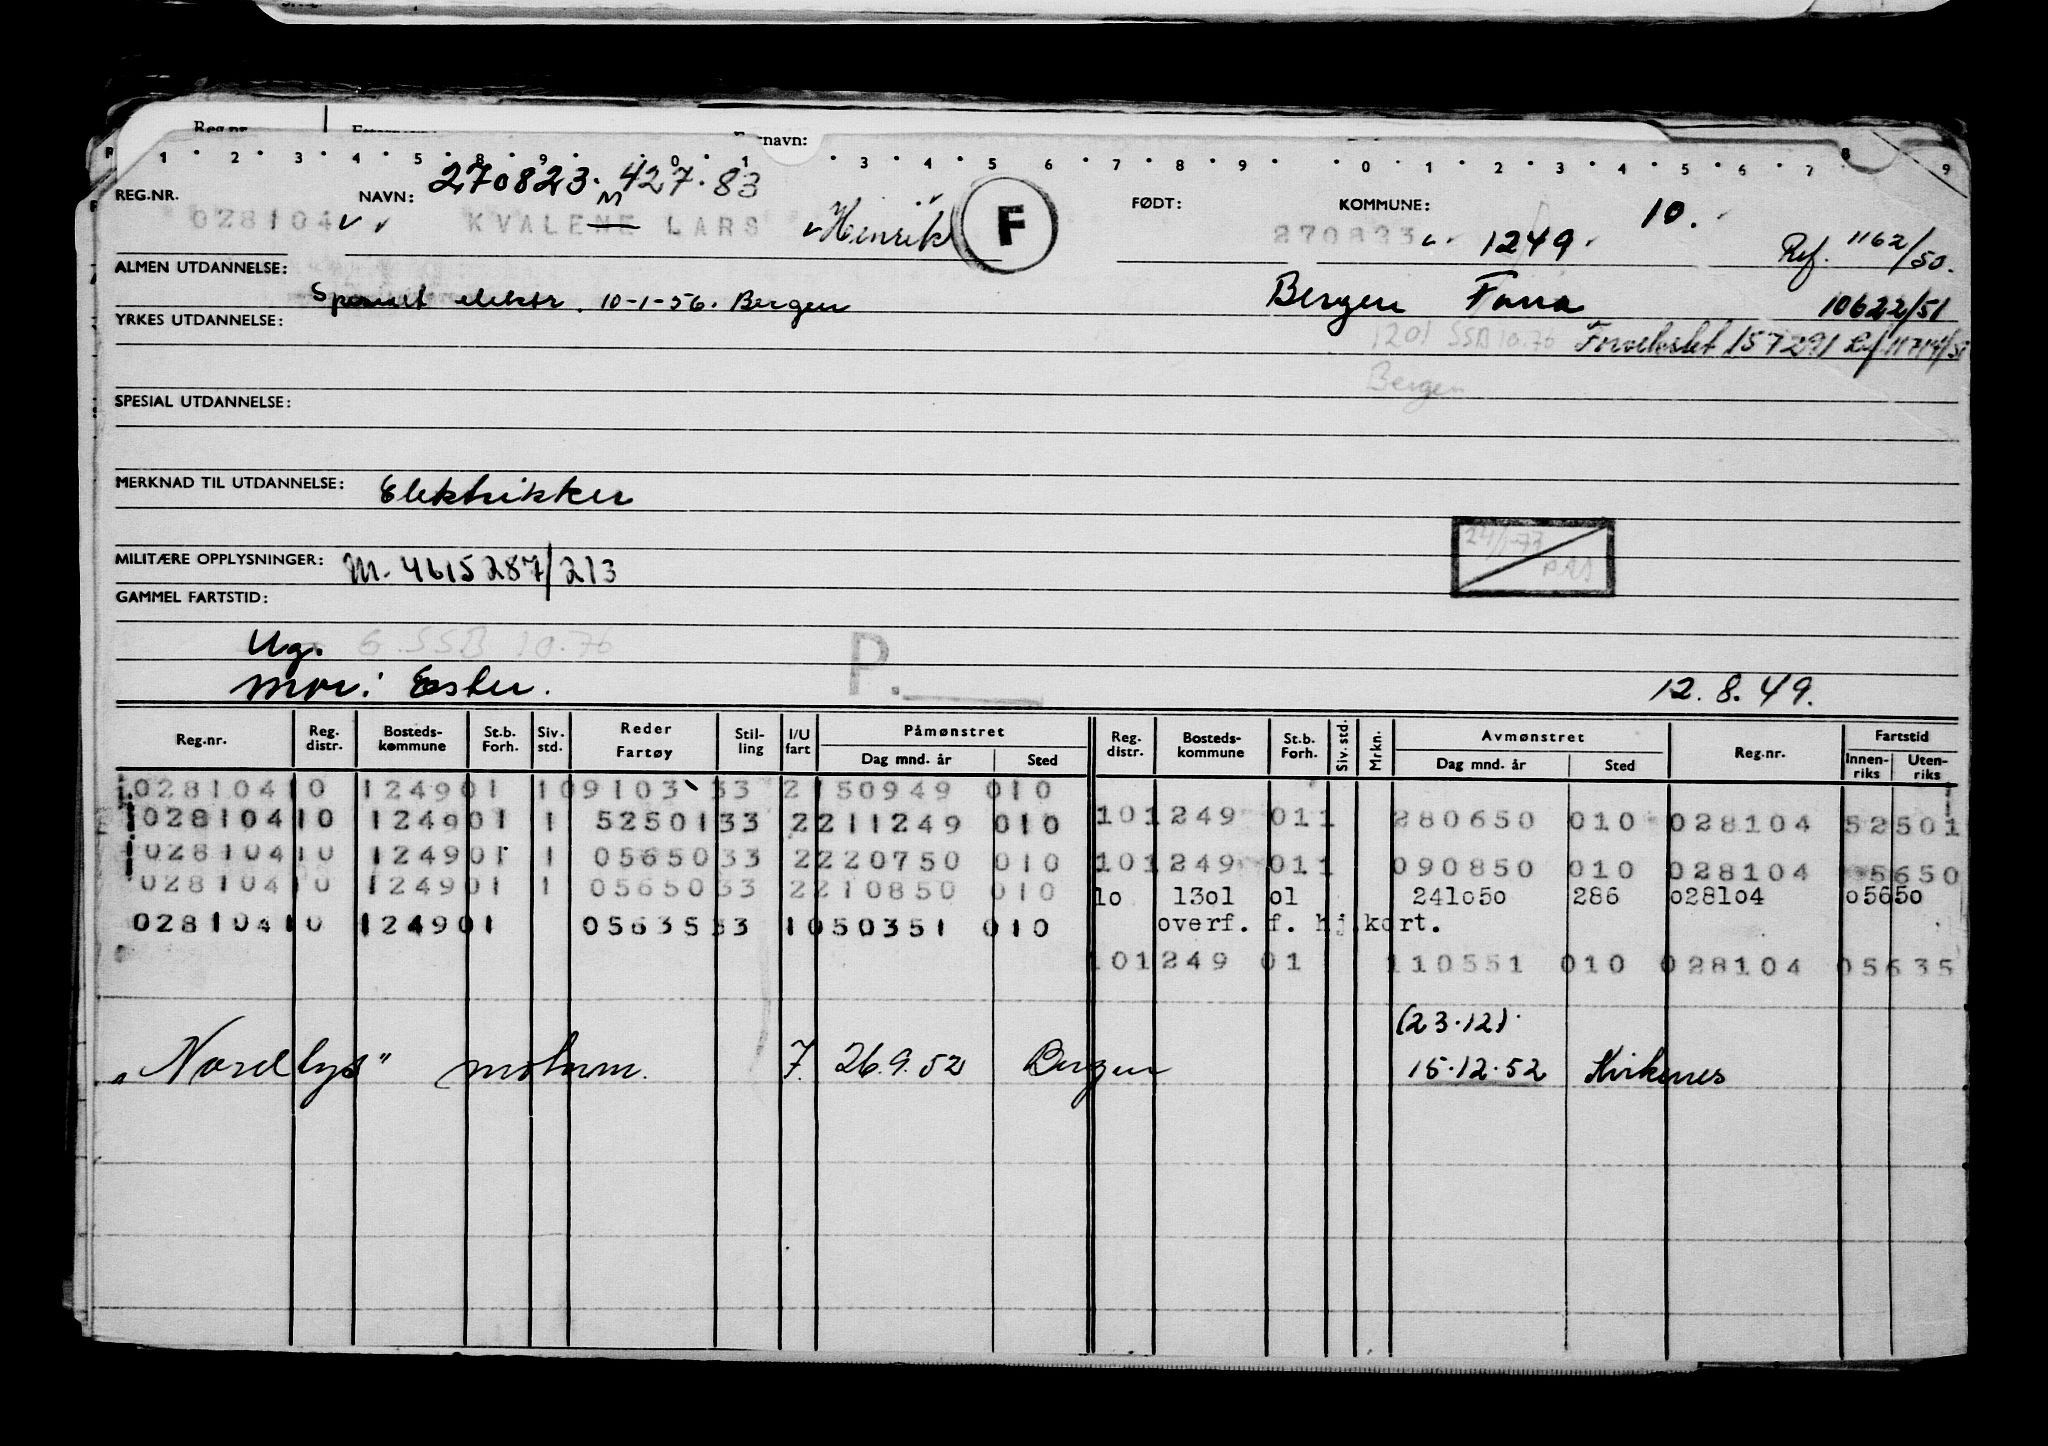 Reg.nr.
navn:
1 2 3 4 5 8 9 0 1 3 4 5 6 7 8 9 0 2 3 4 5 6 7 8 9
270823. 427.83
REG.NR. NAVN: FØDT: KOMMUNE: 10.
M
028104 KVALENE LARS Henrik F 270823 1249 Ref. 1162/50.
ALMEN UTDANNELSE:
elektr. 10-1-56. Bergen Bergen Fana 10622/51
YRKES UTDANNELSE:
1201 SSB 10.76 157291 Ref. 11714/51
Bergen
SPESIAL UTDANNELSE:
MERKNAD TIL UTDANNELSE: Elektrikker
24/1-73
MILITÆRE OPPLYSNINGER: M. 4615287/213
GAMMEL FARTSTID:
Ug. G. SSB 10.76 P.
Mor: Ester. 12.8.49.
Reg.nr. Reg. distr. Bosteds-kommune St.b. Forh. Siv. std. Reder Fartøy Stil-ling I/U fart Påmønstret Dag mnd. år Sted Reg. distr. Bosteds-kommune St.b. Forh. Siv. std. Mrkn. Avmønstret Dag mnd. år Sted Reg.nr. Fartstid Innen-riks Uten-riks
028104 10 1249 01 1 09103 33 2 150949 010
028104 10 1249 01 1 52501 33 2 211249 010 10 1249 01 1 280650 010 028104 52501
028104 10 1249 01 1 05650 33 2 220750 010 10 1249 01 1 090850 010 028104 05650
028104 10 1249 01 1 05650 33 2 210850 010 10 1301 01 241050 286 028104 05650
028104 10 1249 01 05635 33 1 050351 010 overf. f. hj.kort.
10 1249 01 110551 010 028104 05635
(23.12).
"Nordlys" motorm. 7. 26.9.52 Bergen 15.12.52 Kirkenes